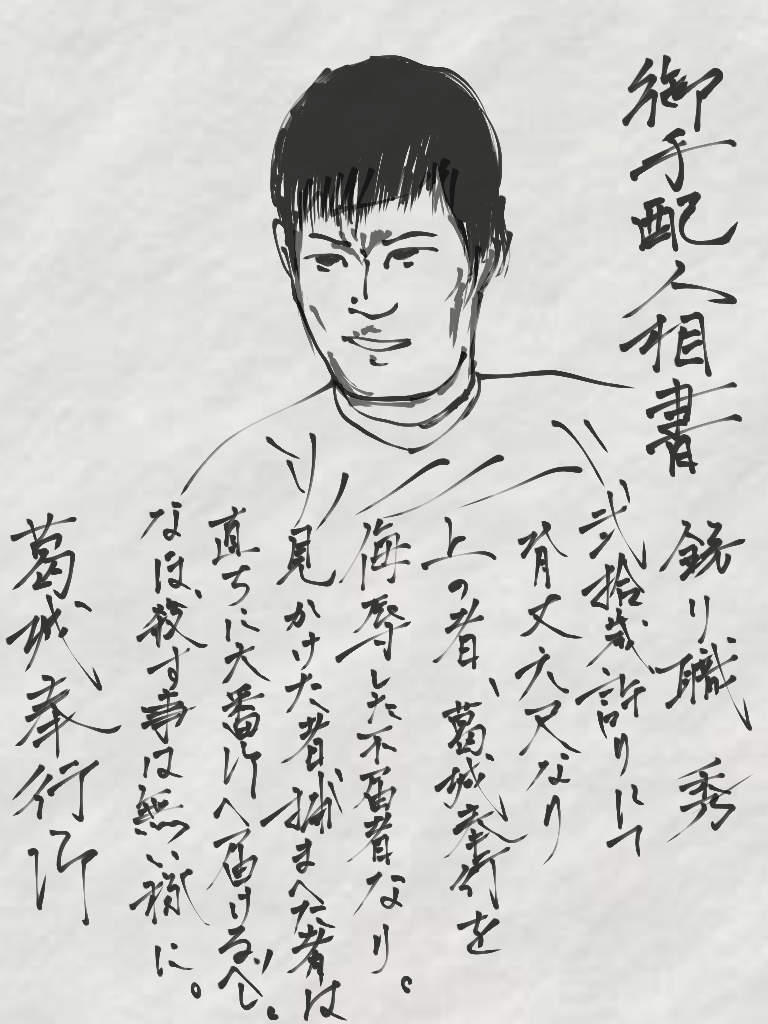 御手配人相書
錺り職 秀
弐拾歳許りにて
背丈六尺なり
上の者、葛城奉行を
侮辱した不届者なり。
見かけた者捕まへた者は
直ちに大番所へ届けるべし。
なほ、殺す事は無い様に。
葛城奉行所